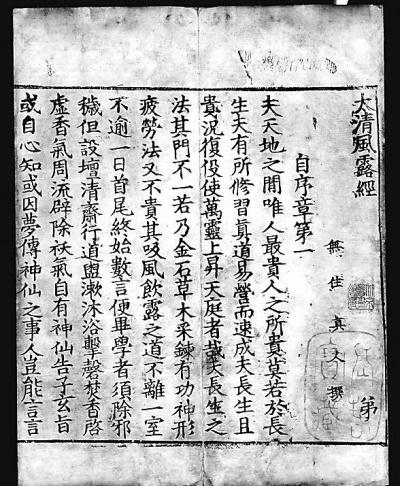 太清風露經
無住真人撰
自序章第一
夫天地之間唯人最貴人之所貴莫若於長
生夫有所修習真道易營而速成夫長生且
貴況復役使萬靈上昇天庭者哉夫長生之
法其門不一若乃金石草木采鍊有功神形
疲勞法又不貴其吸風飲露之道不離一室
不逾一日首尾終始數言便畢學者須除邪
穢但設壇清齋行道盥漱沐浴擊磬焚香啓
虛香氣周流辟除祅氣自有神仙告子玄旨
或自心知或因夢傳神仙之事人豈能言言